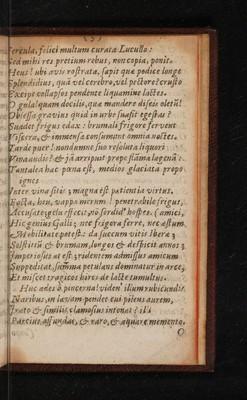 (5)
Fercula, felici multum curata Lucullo:
Sed mihi res pretium rebus, non copia, ponit.
Heus! ubi avis rostrata, sapit quæ podice longe
Splendidius, quâ vel cerebro, vel pectore? crusto
Excipe collapsos pendente liquamine lactes.
O gula! quam docilis, quæ mandere discis oletũ!
Obsessa gravius quid in urbe suasit egestas?
Suadet frigus edax: brumali frigore fervent
Viscera, & immensa consumant omnia noctes.
Tarde puer! nondumne suo resoluta liquori
Vina audis? & jã arripuit prope flãma lagenã.
Tantalea hæc pœna est, medios glaciata prope
ignes
Inter vina sitis: magna est patientia virtus.
Hospes. (amici,
Hic genius Galli; nec frigora ferre, nec æstum
& Mobilitate potest: da succum vitis Iberæ;
Solstitiũ & brumam, longos & despicit annos;
Imperiosus at est; ridentem admissus amicum
Suppeditat, summa petulans dominatur in arce,
Et miscet tragicos hircos de lacte tumultus.
Huc ades ô pincerna! viden' illum rubicundis
Naribus, in lævam pendet cui pileus aurem,
Irato & similis, clamosius intonat? illi
Parcius affundas, & raro, & aquare memento.
O